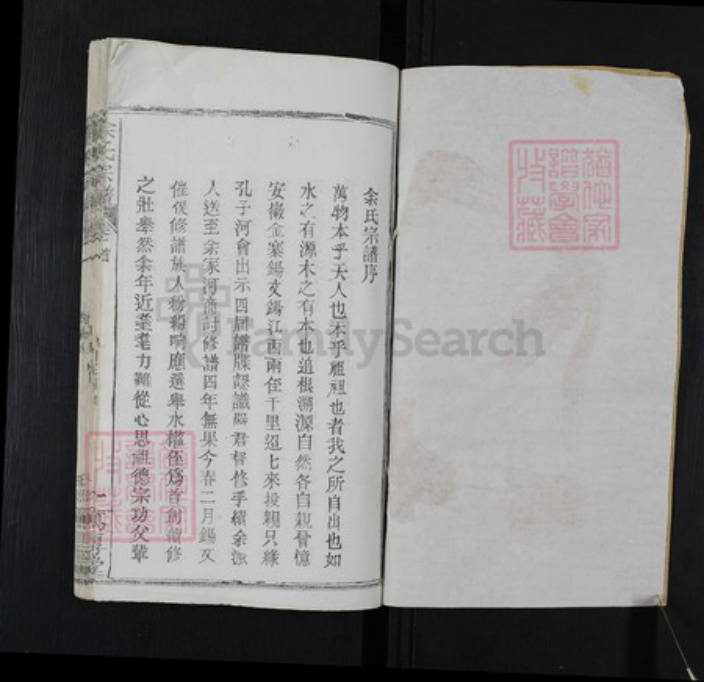 余氏宗譜序
萬物本乎天人也本乎祖祖也者我之所自出也如
水之有源木之有本也追根溯源自然各自親曾憶
安徽金寨錫文錫江西兩侄千里迢七來投親只緣
孔子河會出示四屆譜牒認識嚴君督修手續余派
人送至余家河商討修譜四年無果今春二月錫文
催促修譜族人紛紛响應選舉水權侄為首創續修
之壯舉然余年近耄耋力難從心思祖德宗功父輩
余氏宗譜
卷首
FamilySearch
譜學會
收藏